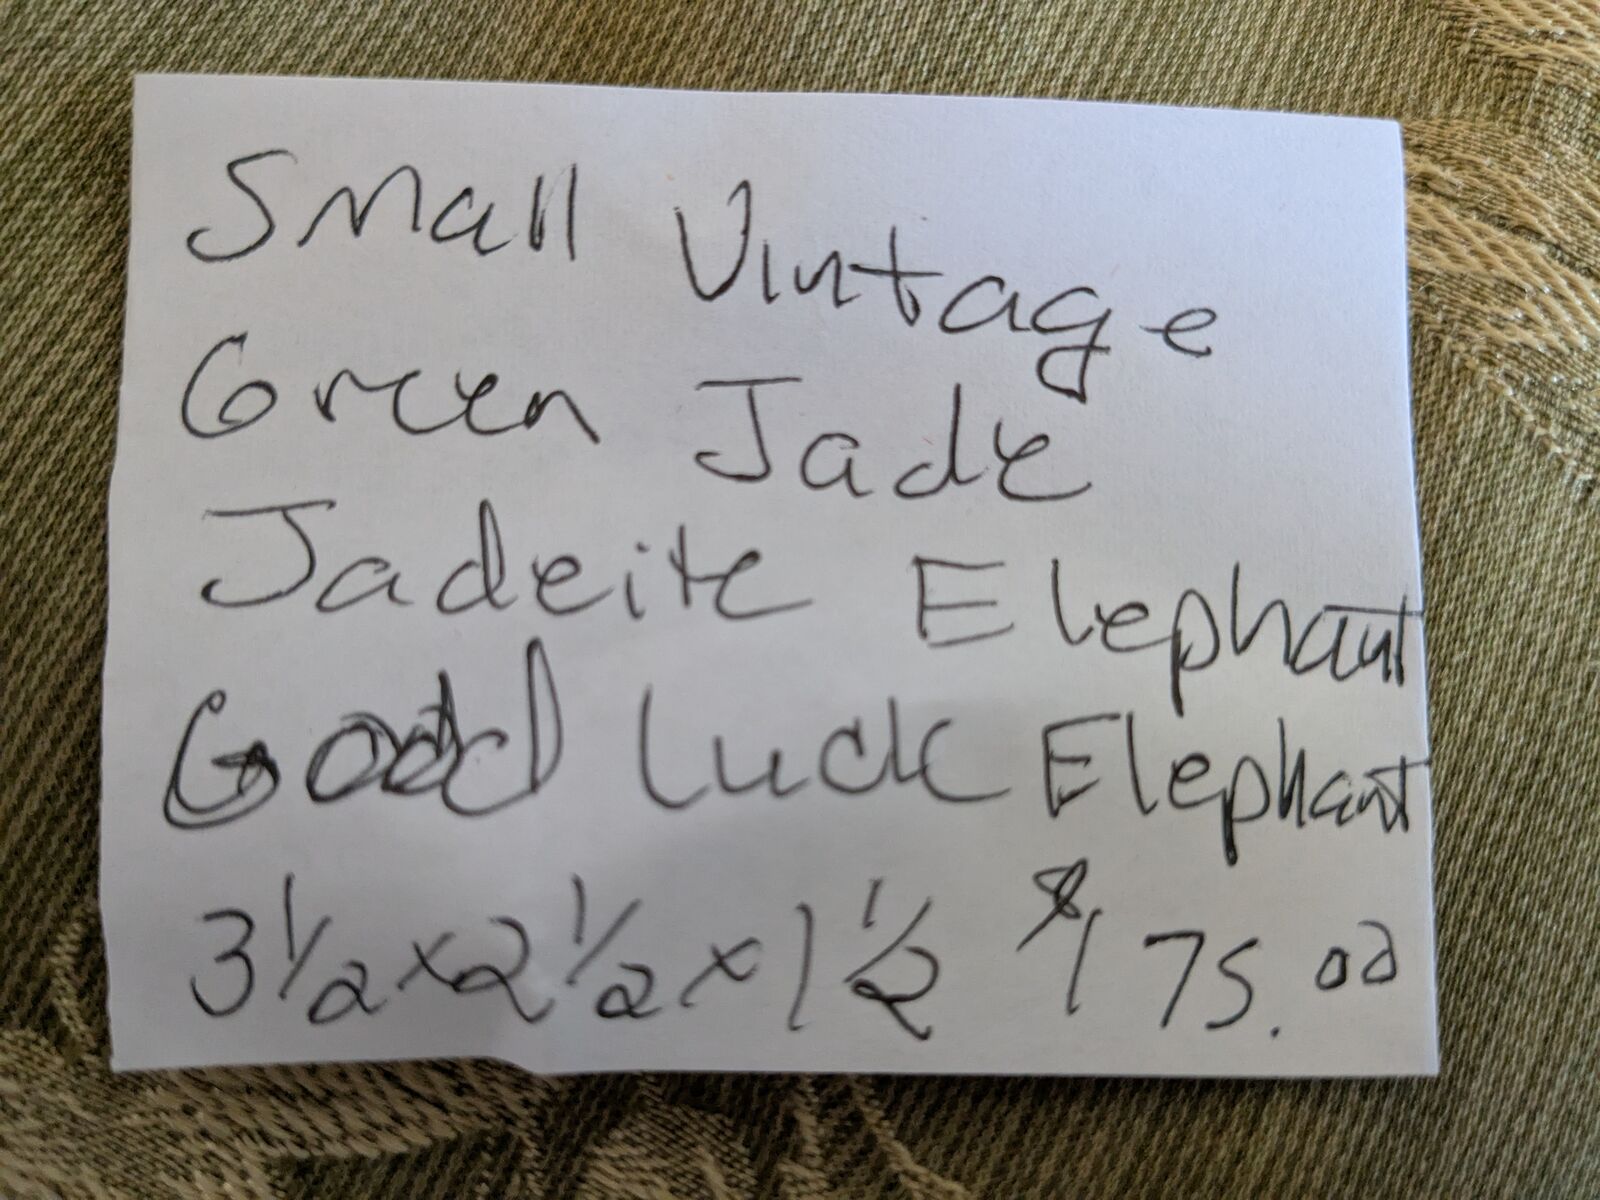 Small Vintage
Green Jade
Jadeite Elephant
Good luck Elephant
3 1/2 x 2 1/2 x 1 1/2 $175.00